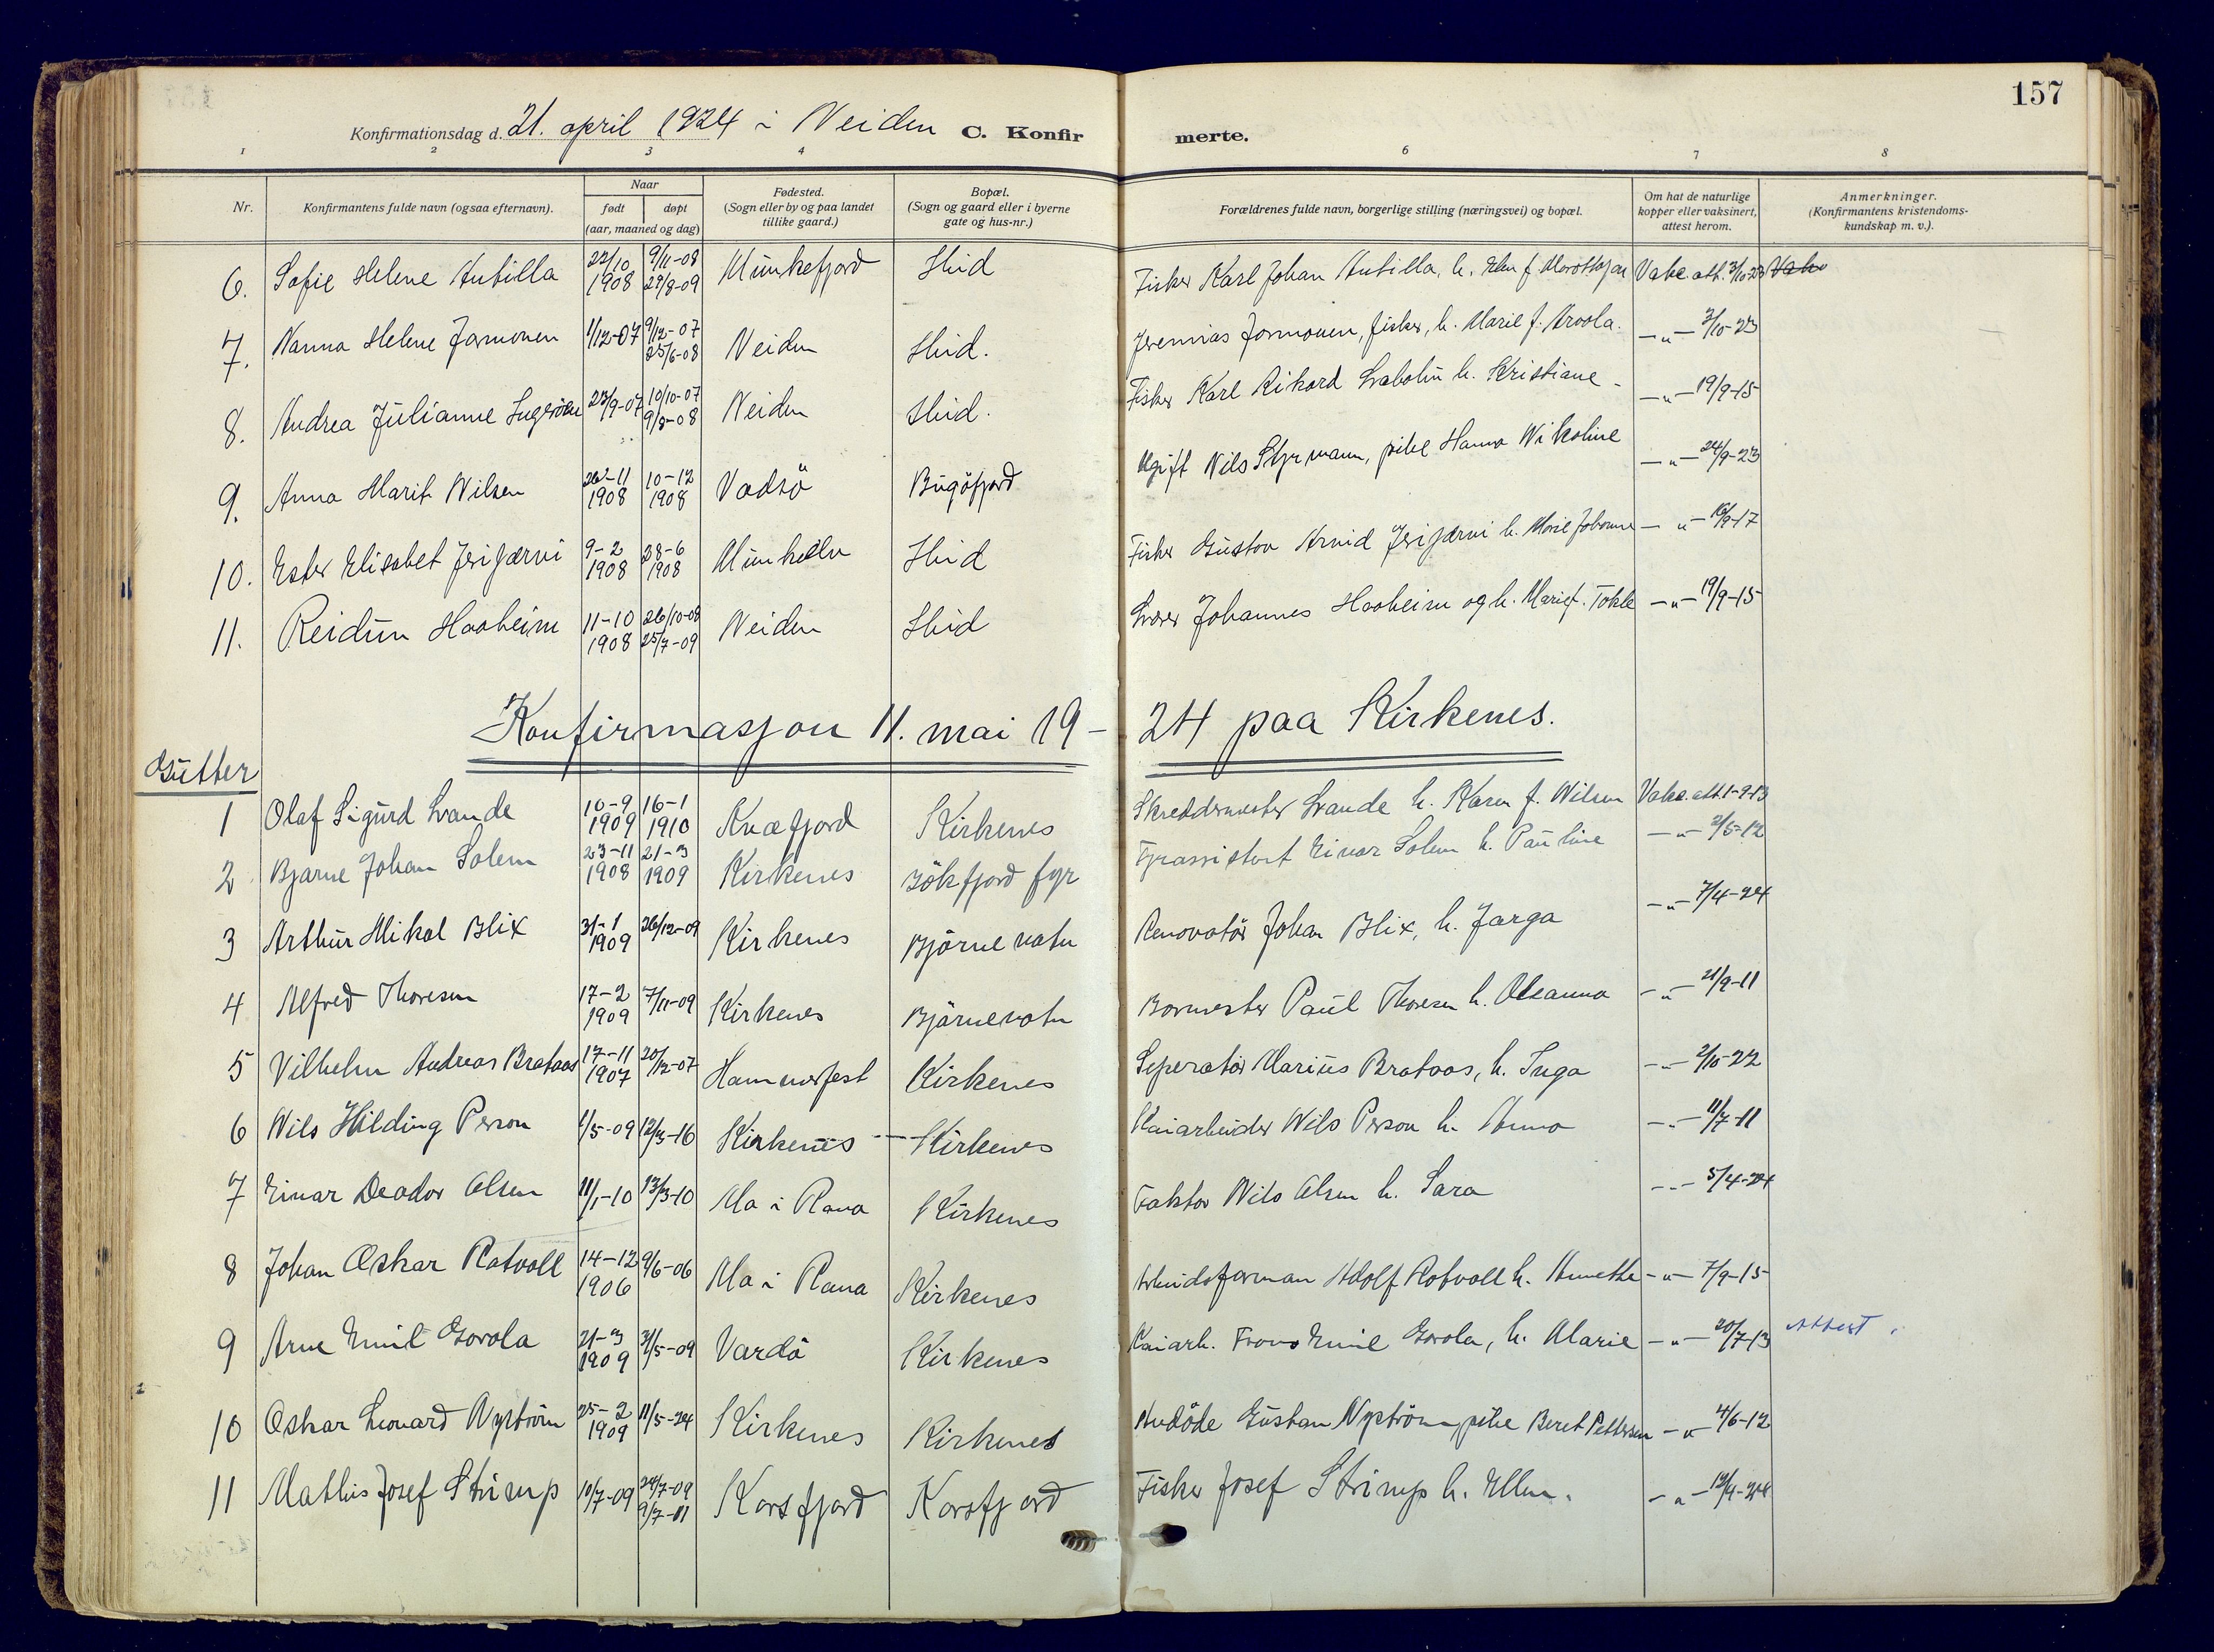 157
Konfirmationsdag d. 21. april 1924 i Neiden C. Konfir merte.
1 2 3 4 6 7 8
Nr. Konfirmantens fulde navn (ogsaa efternavn). Naar født døpt (aar, maaned og dag) Fødested. (Sogn eller by og paa landet tillike gaard.) Bopæl. (Sogn og gaard eller i byerne gate og hus-nr.) Forældrenes fulde navn, borgerlige stilling (næringsvei) og bopæl. Om hat de naturlige kopper eller vaksinert, attest herom. Anmerkninger. (Konfirmantens kristendoms-kundskap m. v.).
6. Sofie Helene Antilla 22/10 1908 9/11-08 29/8-09 Munkefjord Ibid Fisker Karl Johan Antilla, h. Elen f. Vakc. att. 3/10-23
7. Nanna Helene Jarmonen 1/12-07 9/12-07 25/6-08 Neiden Ibid. Jeremias Jarmonen, fisker, h. Marie f. Aroola. -"- 3/10-23
8. Andrea Julianne 23/9-07 10/10-07 9/8-08 Neiden Ibid. Fisker Karl Rikard h. Kristiane -"- 19/9-15
9. Anna Marit Nilsen 26-11 1908 10-12 1908 Vadsö Bugöfjord Ugift Nils Styrmann, pike Hanna Nikoline -"- 24/9-23
10. Ester Elisabet Jerijærvi 9-2 1908 28-6 1908 Munkelv Ibid Fisker Gustav Arvid Jerijærvi h. Marie Johanne -"- 16/9-17
11. Reidun Haaheim 11-10 1908 26/10-08 25/7-09 Neiden Ibid Lærer Johannes Haaheim og h. Marie f. Tokle -"- 19/9-15
Konfirmasjon 11. mai 19-24 paa Kirkenes.
Gutter
1 Olaf Sigurd Lrande 10-9 1909 16-1 1910 Kvæfjord Kirkenes Skreddermester Lrande h. Karen f. Nilsen Vakc. att. 1-9-13
2 Bjarne Johan Solem 23-11 1908 21-3 1909 Kirkenes Bökfjord fyr Fyrassistent Einar Solem h. Pauline -"- 2/5-12
3 Arthur Mikal Blix 31-1 1909 26/12-09 Kirkenes Björnevatn Renovatör Johan Blix, h. Jarga -"- 7/4-24
4 Alfred Thoresen 17-2 1909 7/11-09 Kirkenes Björnevatn Bormester Paul Thoresen h. Oleanna -"- 21/9-11
5 Vilhelm Andreas Brataas 17-11 1907 20/12-07 Hammerfest Kirkenes Seperatör Marius Brataas, h. Inga -"- 2/10-22
6 Nils Hilding Person 1/5-09 12/3-16 Kirkenes -- Kirkenes Kaiarbeider Nils Person h. Anna -"- 11/7-11
7 Einar Deodor Olsen 11/1-10 13/3-10 Mo i Rana Kirkenes Faktor Nils Olsen h. Sara -"- 5/4-24
8 Johan Oskar Rotvoll 14-12 1906 9/6-06 Mo i Rana Kirkenes Arbeidsforman Adolf Rotvoll h. Anethe -"- 7/9-15
9 Arne Emil Gorola 21-3 1909 31/5-09 Vardö Kirkenes Kaiarb. Frans Emil Gorola, h. Marie -"- 20/7-13 Attest.
10 Oskar Leonard Nyström 25-2 1909 11/5-24 Kirkenes Kirkenes Avdöde Gustav Nyström, pike Beret Pettersen -"- 4/6-12
11 Mathis Josef Strimp 10/7-09 24/7-09 9/7-11 Korsfjord Korsfjord Fisker Josef Strimp h. Ellen. -"- 12/4-24